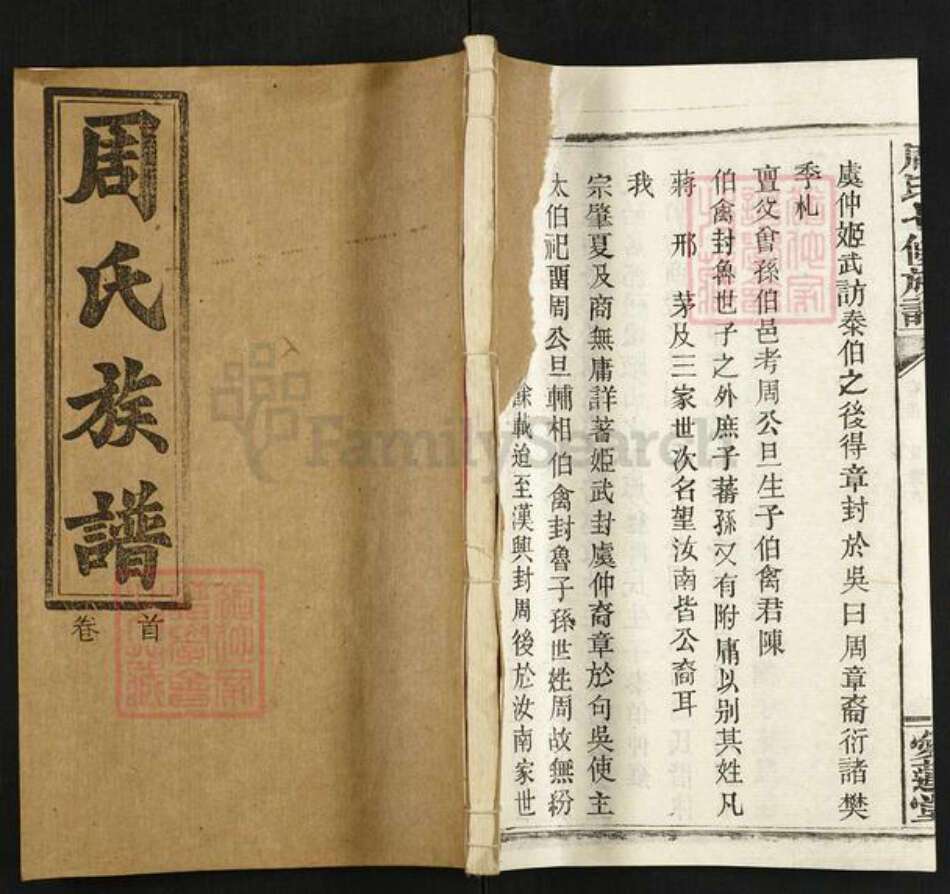 周氏族譜
卷首
虞仲姬武訪泰伯之後得章封於吳曰周章裔衍諸樊
季札
亶父會孫伯邑考周公旦生子伯禽君陳
伯禽封魯世子之外庶子蕃孫又有附庸以別其姓凡
蔣邢茅及三家世次名望汝南皆公裔耳
我
宗肇夏及商無庸詳著姬武封虞仲裔章於句吳使主
太伯祀畱周公旦輔相伯禽封魯子孫世姓周故無紛
載迨至漢興封周後於汝南家世
周氏七修族譜
愛蓮堂
FamilySearch